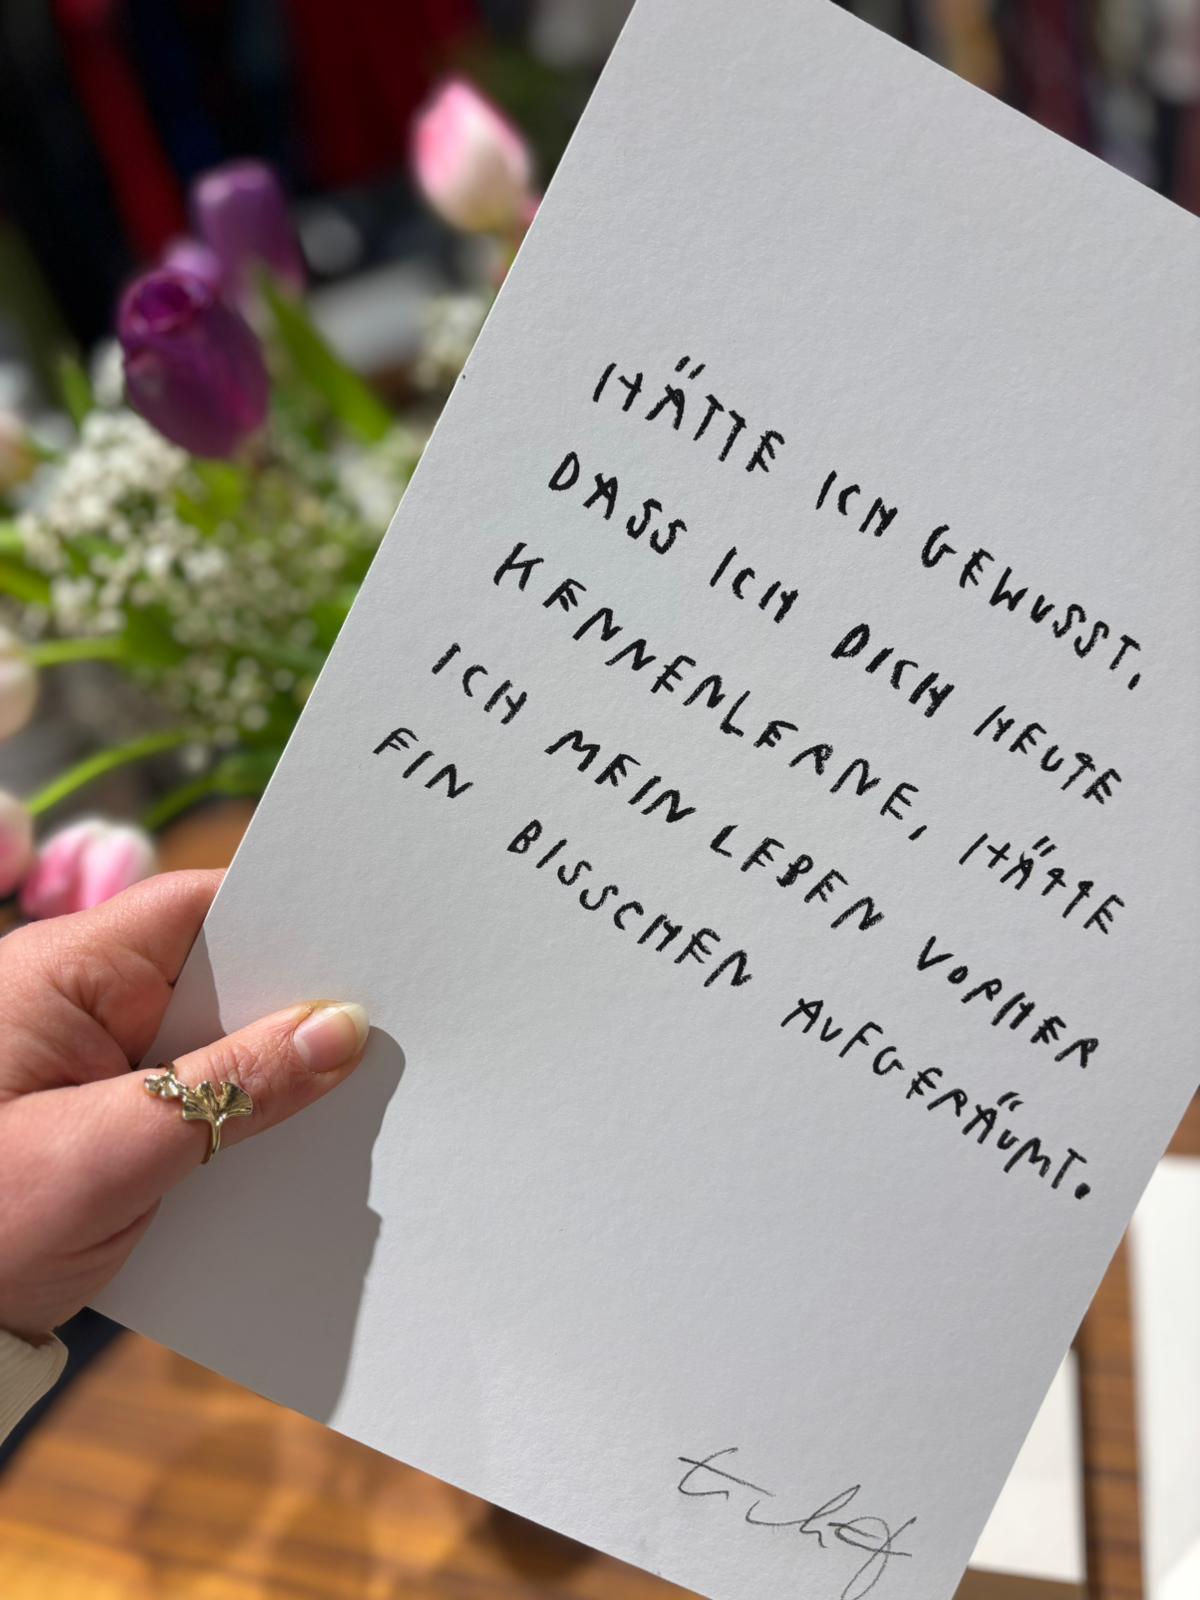 HÄTTE ICH GEWUSST,
DASS ICH DICH HEUTE
KENNENLERNE, HÄTTE
ICH MEIN LEBEN VORHER
EIN BISSCHEN AUFGERÄUMT.